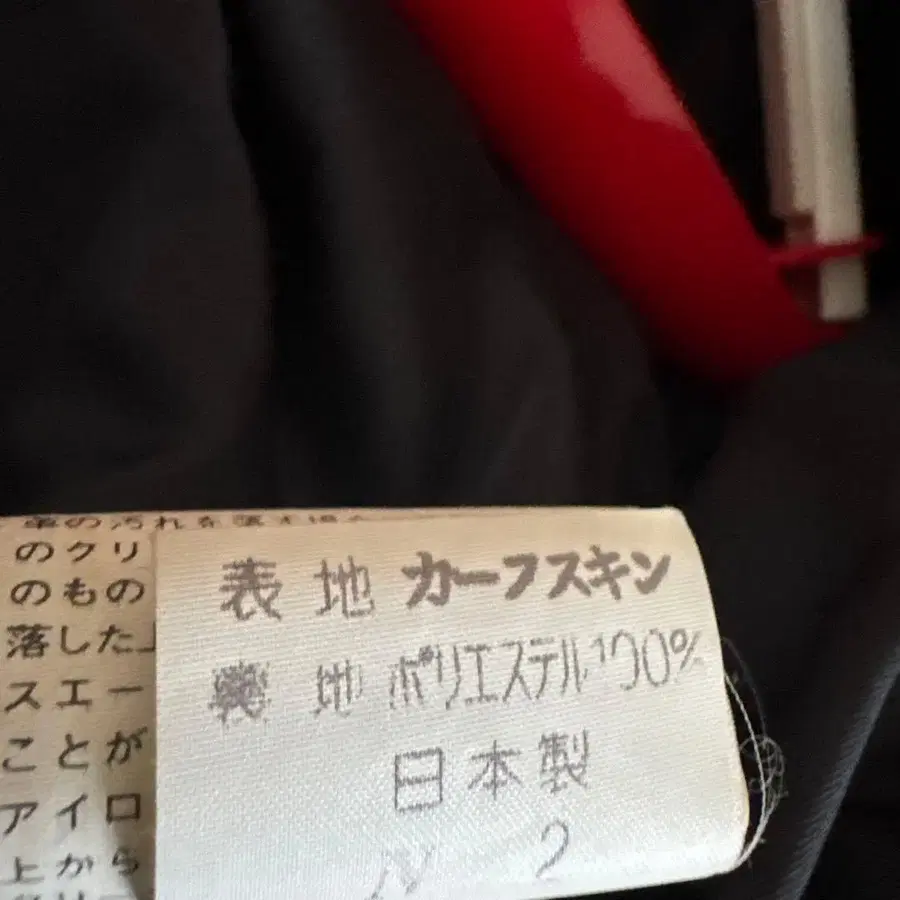 革の汚れを落す場合
のクリ
のもの
落した
スエー
ことが
アイロ
上から
表地 カーフスキン
裏地 ポリエステル100%
日本製
N 2